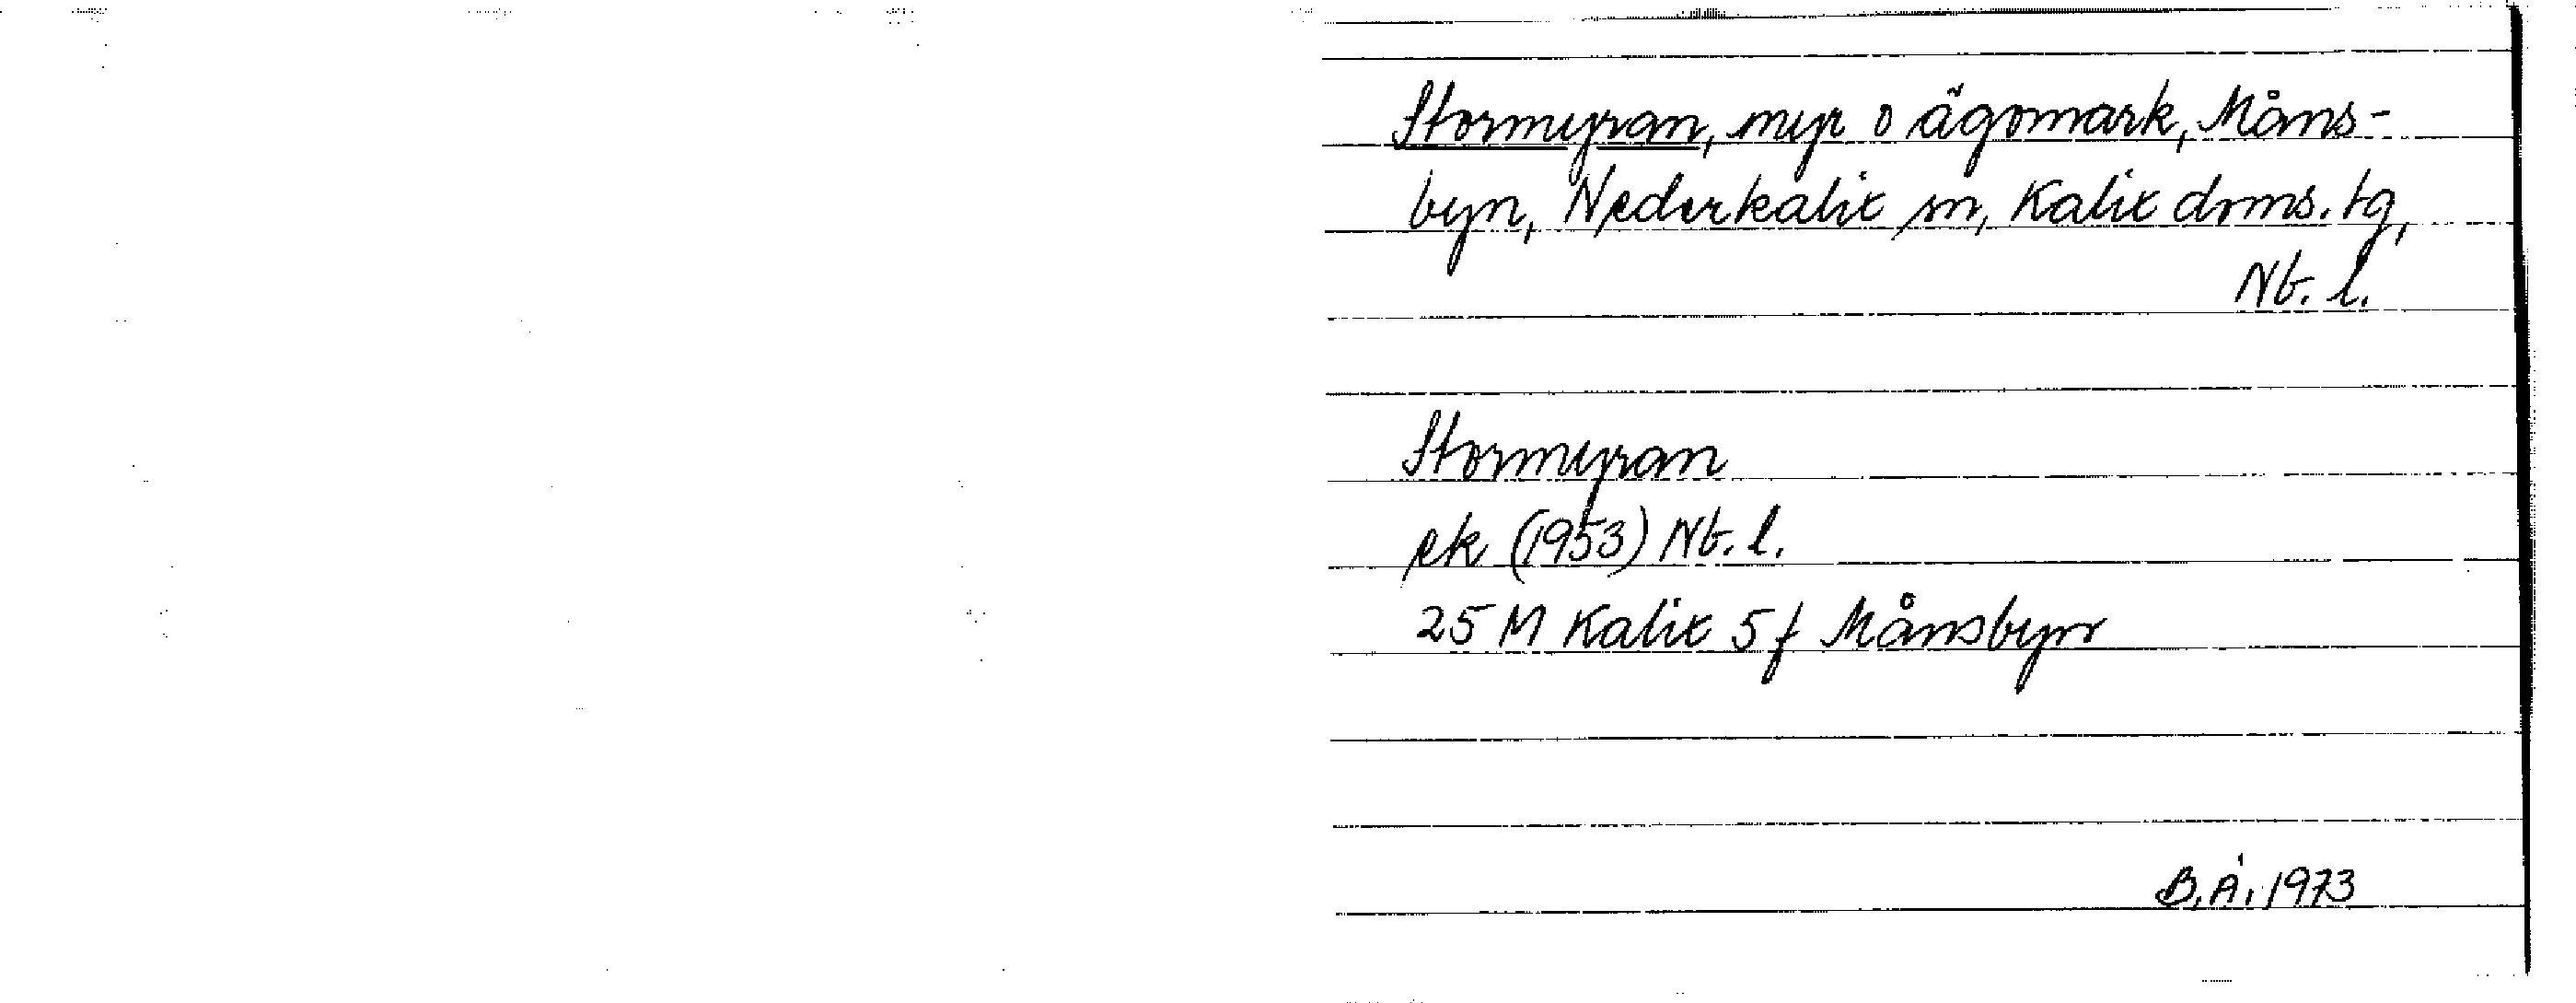 Stormyran, myr o ägomark, Måns-
byn, Nederkalix sn, Kalix doms. tg,
Nb. l.
Stormyran
ek (1953) Nb. l.
25 M Kalix 5 f Månsbyn
B.Å. 1973